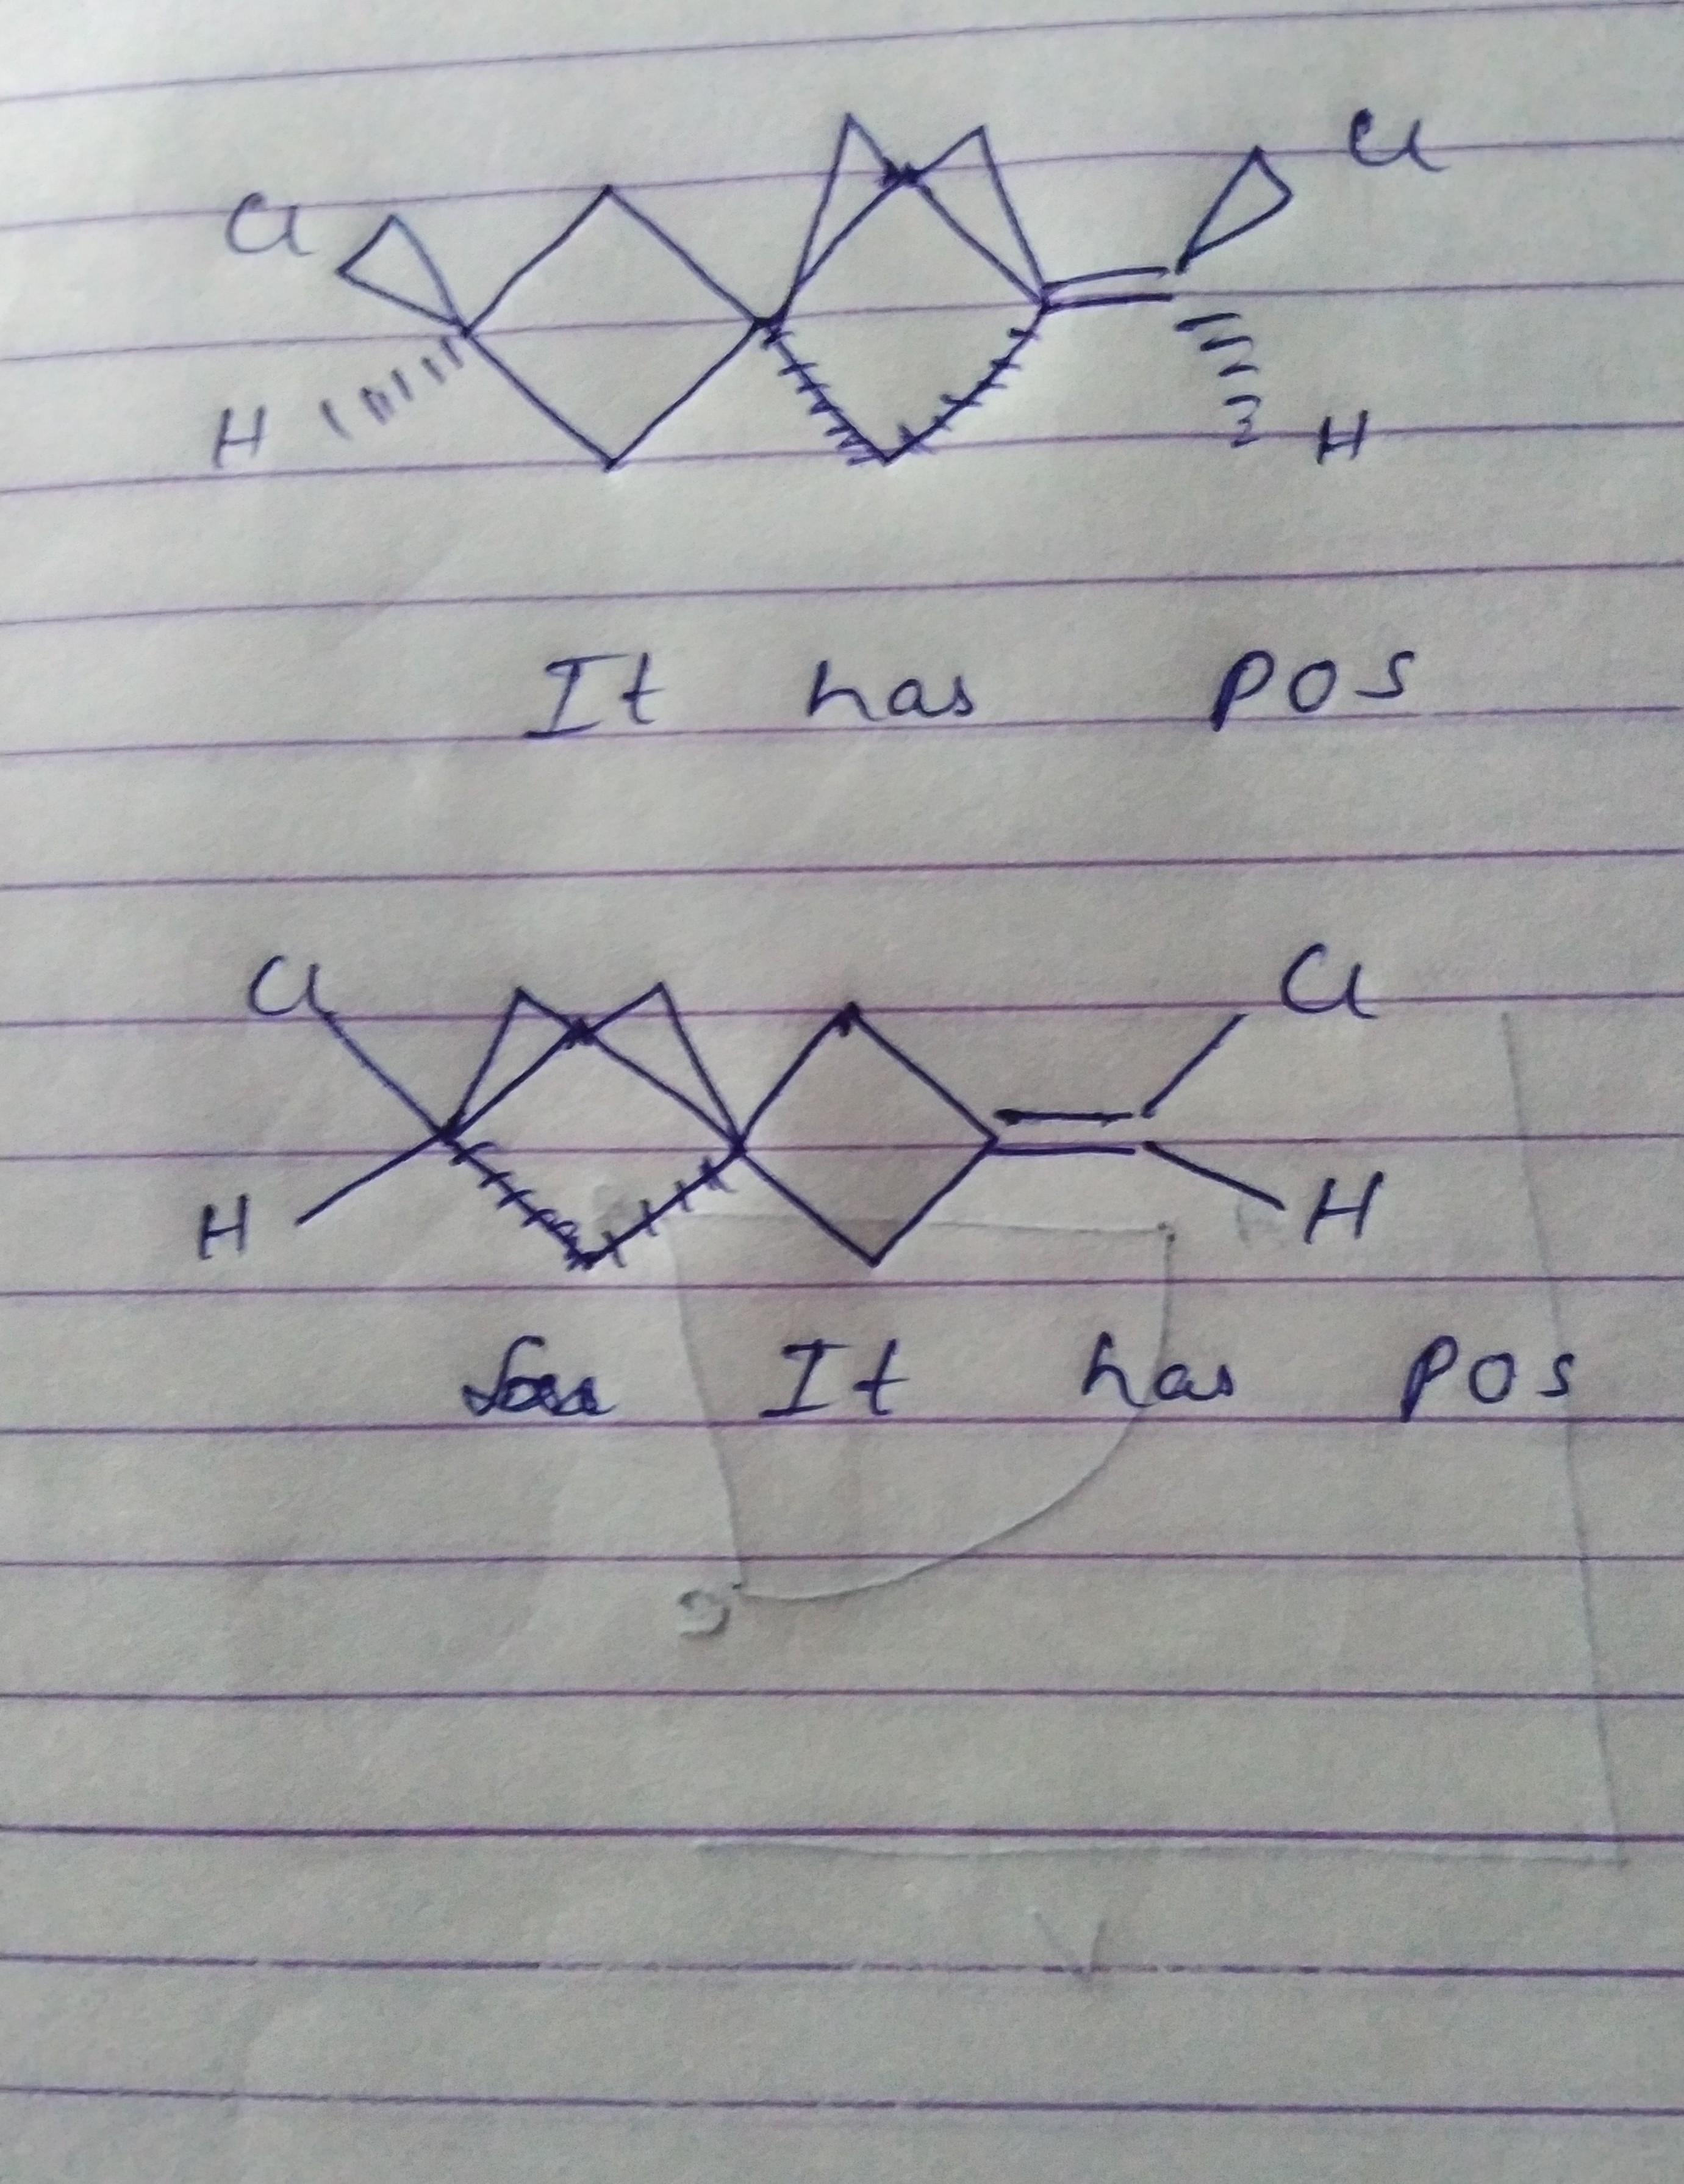 Cl Cl
H H
It has POS
Cl Cl
H H
It has POS